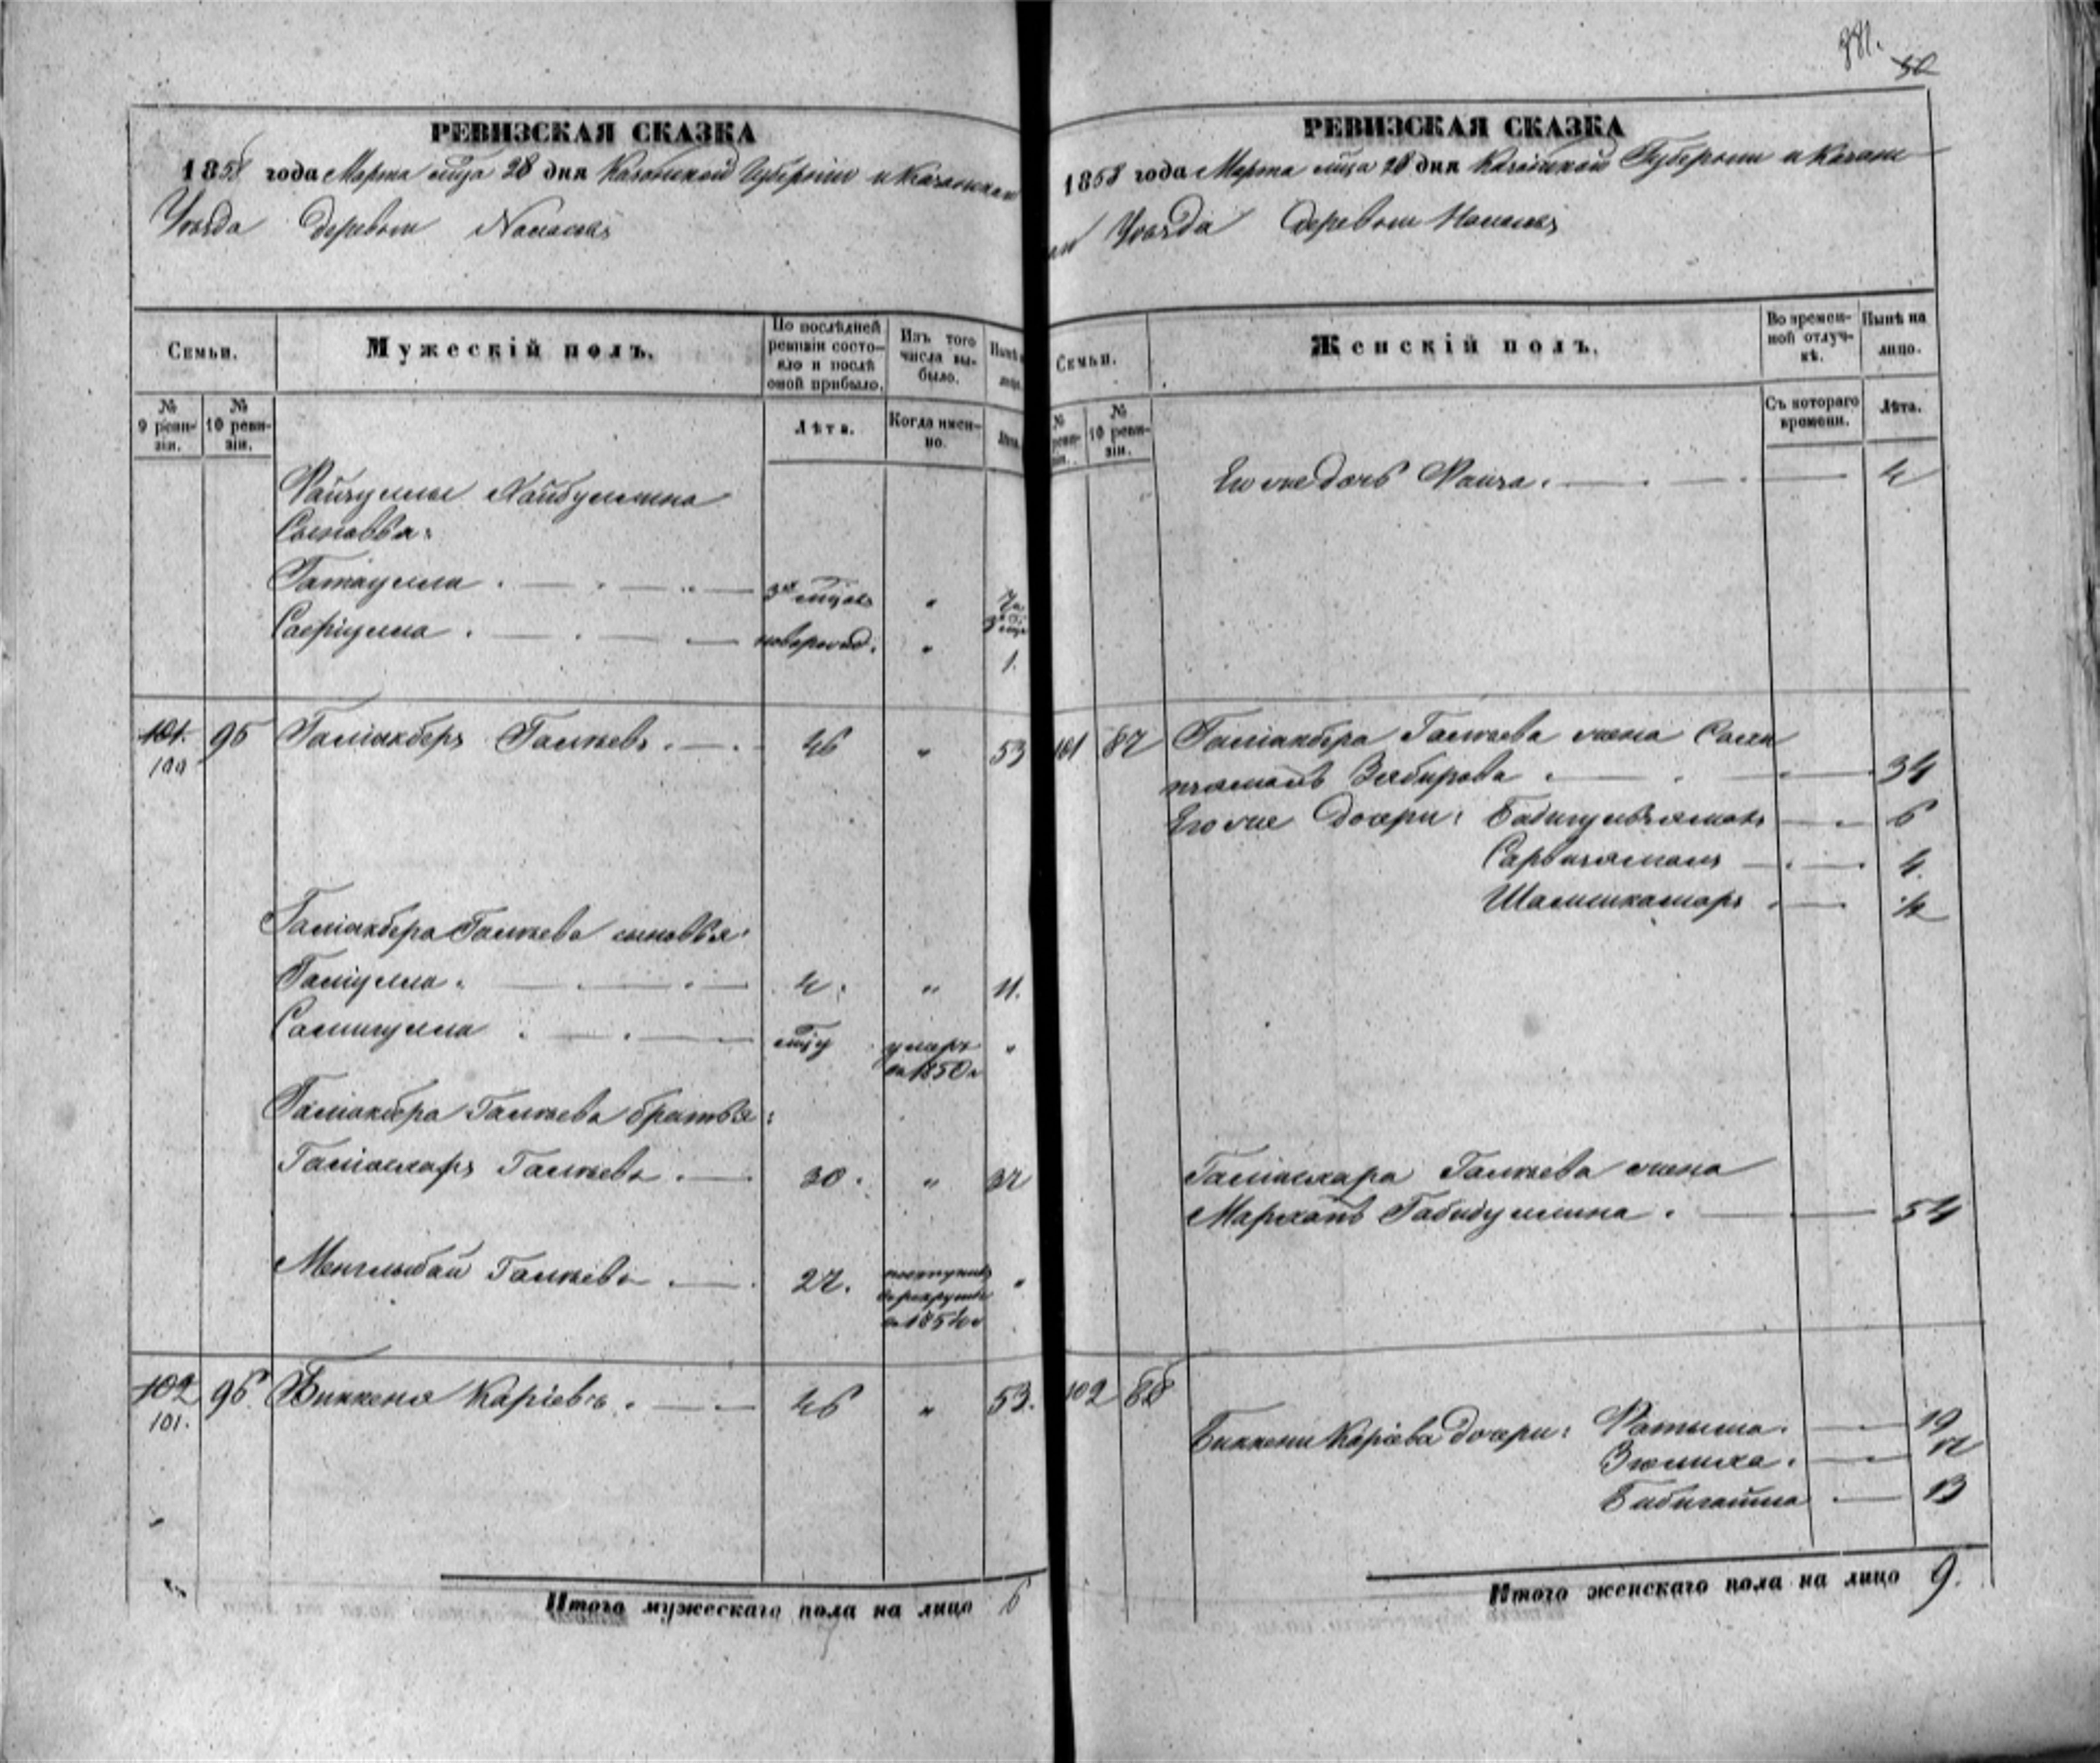 381.
50
РЕВИЗСКАЯ СКАЗКА
1858 года Марта м̃ца 28 дня Казанской Губернiи и Казанскаго
Уѣзда Деревни
Семьи.
Мужескiй полъ.
По послѣдней ревизiи состояло и послѣ оной прибыло.
Изъ того числа выбыло.
№ 9 ревизiи.
№ 10 ревизiи.
Лѣта.
Когда именно.
Файзуллы Хайбуллина
Сыновья:
Гатаулла
Сафiулла новорожд. " 1.
101. 100 95 Галiакберъ Галѣевъ 46 " 53
Галiакбера Галѣева сыновья:
Галiулла 4. " 11.
Самигулла умеръ въ 1850 г. "
Галiакбера Галѣева братья:
Галiаскаръ Галѣевъ 30. " 37
Менглыбай Галѣевъ 27. поступилъ въ рекруты въ 1854 г. "
102 101. 96 Биккеня Карiевъ 46 " 53.
Итого мужескаго пола на лицо 6
РЕВИЗСКАЯ СКАЗКА
1858 года Марта м̃ца 28 дня Казанской Губернiи и Казанска
го Уѣзда Деревни
Семьи.
Женскiй полъ.
Во временной отлучкѣ.
Нынѣ на лицо.
№ 10 ревизiи.
Съ котораго времени.
Лѣта.
Его же дочь Фаиза. 4
101 87 Галiакбера Галѣева жена
Зябирова 34
Его же Дочери: Бадигульзямалъ 6
Сарвизямалъ 4.
Шамсикамаръ ½
Галiаскара Галѣева жена
Марзянь Габидуллина. 54
102 88
Биккени Карiева Дочери: Фатыма. 19
Зюлиха. 17
Бибигайша 13
Итого женскаго пола на лицо 9.